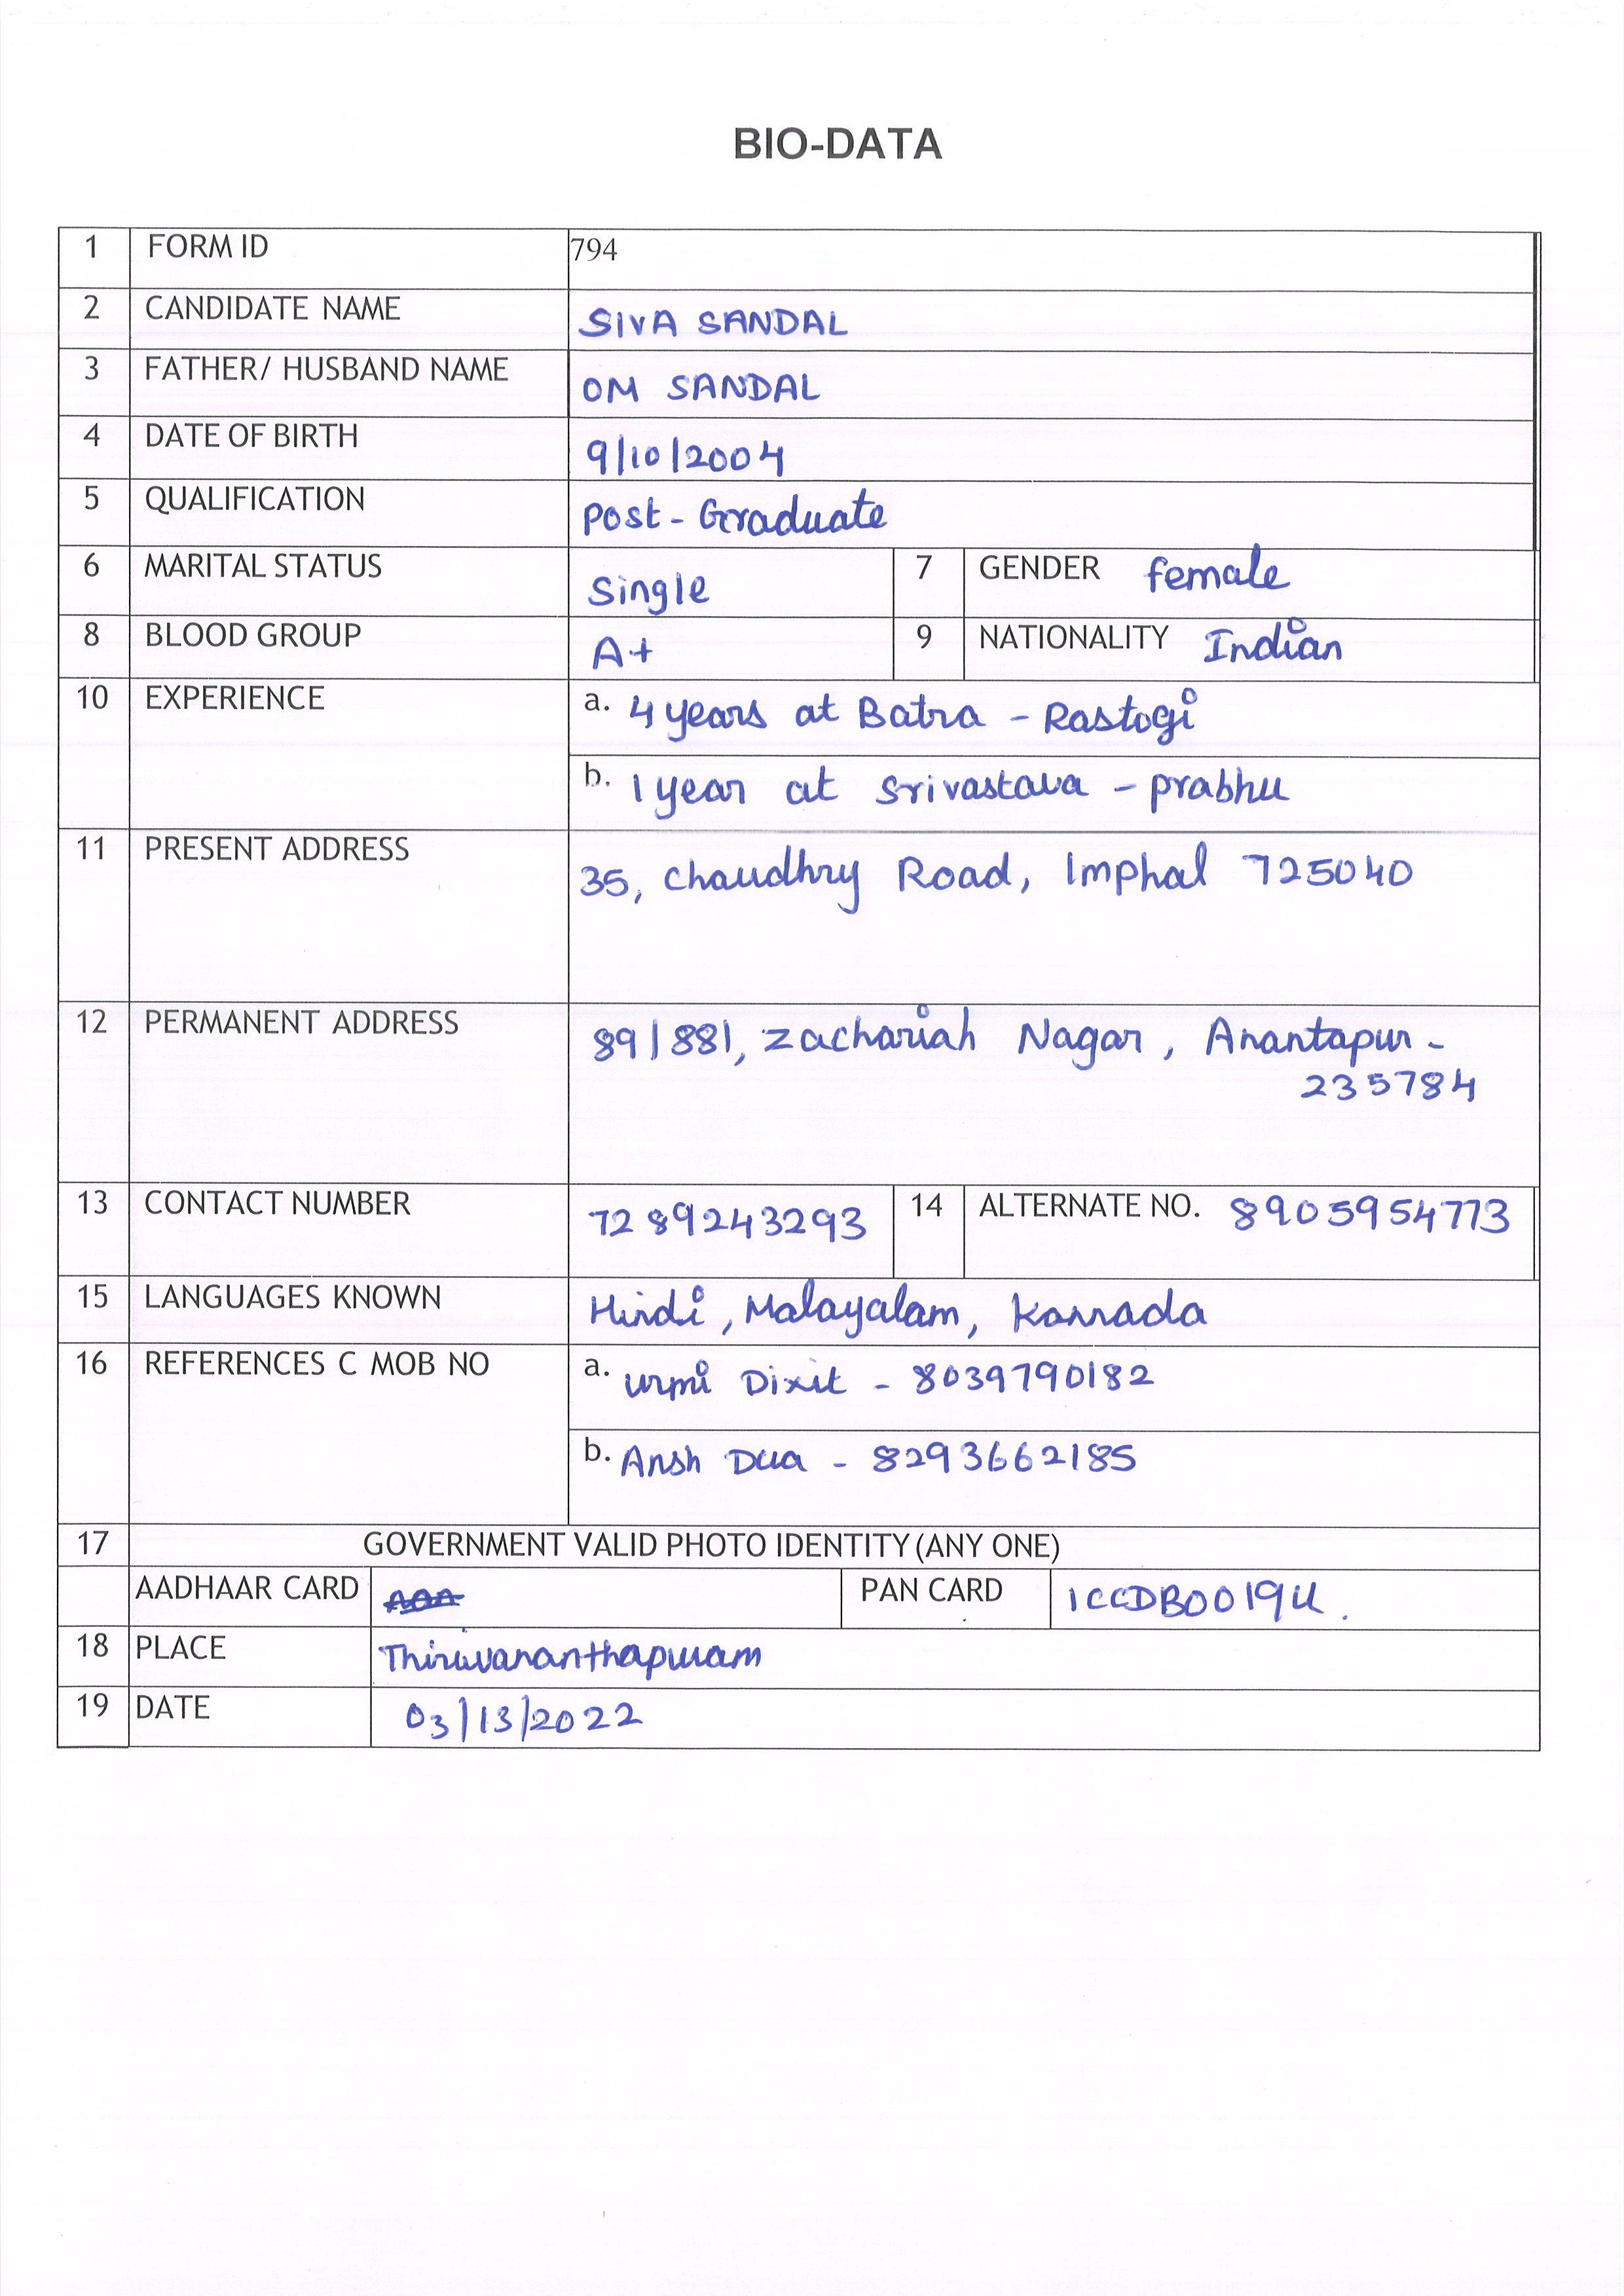 BIO-DATA
1 FORM ID 794
2 CANDIDATE NAME SIVA SANDAL
3 FATHER/ HUSBAND NAME OM SANDAL
4 DATE OF BIRTH 9/10/2004
5 QUALIFICATION Post-Graduate
6 MARITAL STATUS Single 7 GENDER female
8 BLOOD GROUP A+ 9 NATIONALITY Indian
10 EXPERIENCE a. 4 years at Batra - Rastogi
b. 1 year at Srivastava - prabhu
11 PRESENT ADDRESS 35, Chaudhry Road, Imphal 725040
12 PERMANENT ADDRESS 89/881, Zachariah Nagar, Anantapur -
235784
13 CONTACT NUMBER 7289243293 14 ALTERNATE NO. 8905954773
15 LANGUAGES KNOWN Hindi, Malayalam, Kannada
16 REFERENCES C MOB NO a. Urmi Dixit - 8039790182
b. Ansh Dua - 8293662185
17 GOVERNMENT VALID PHOTO IDENTITY (ANY ONE)
AADHAAR CARD PAN CARD ICCDB0019U.
18 PLACE Thiruvananthapuram
19 DATE 03/13/2022